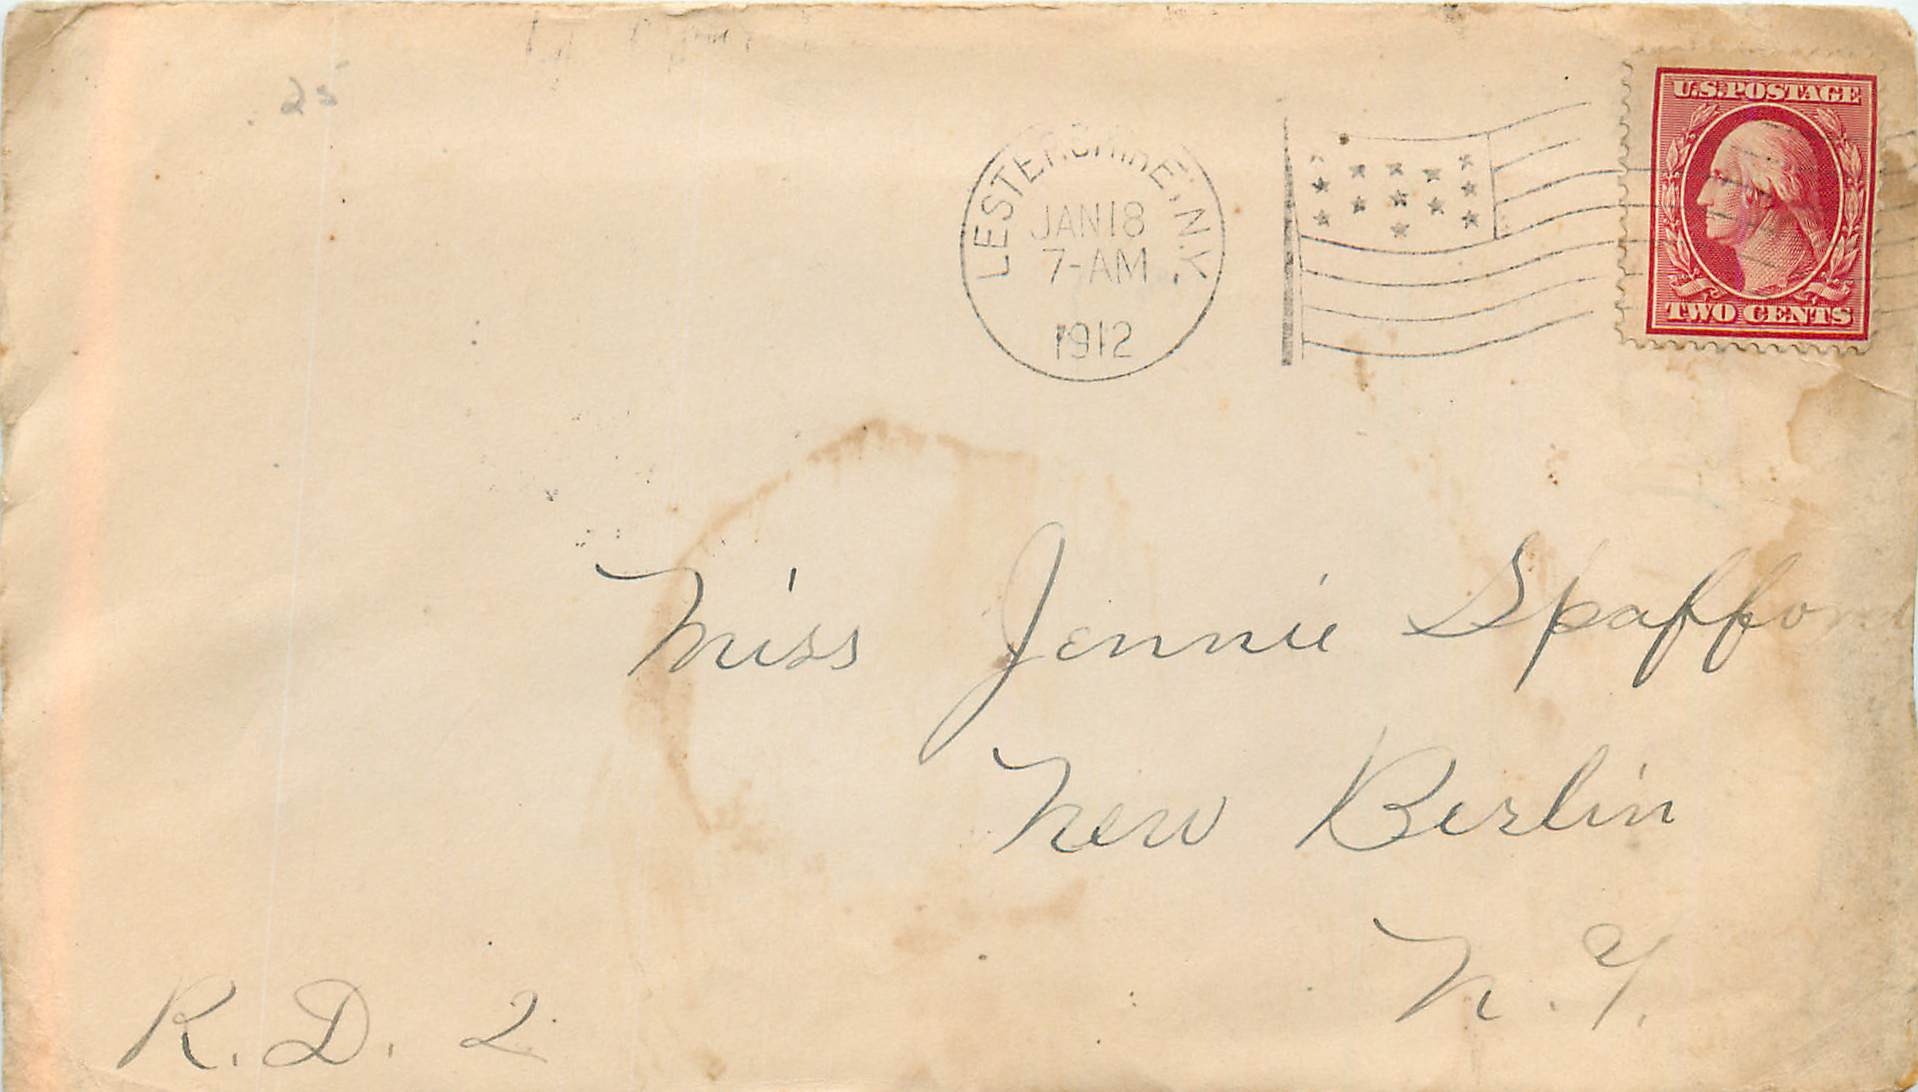 25
U.S. POSTAGE
LESTERSHIRE, N.Y.
JAN 18
7-AM
1912
TWO CENTS
Miss Jennie Spafford
New Berlin
N.Y.
R.D. 2